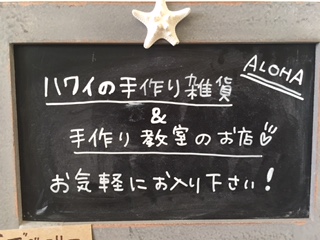 ALOHA
ハワイの手作り雑貨
&
手作り教室のお店
お気軽にお入り下さい!